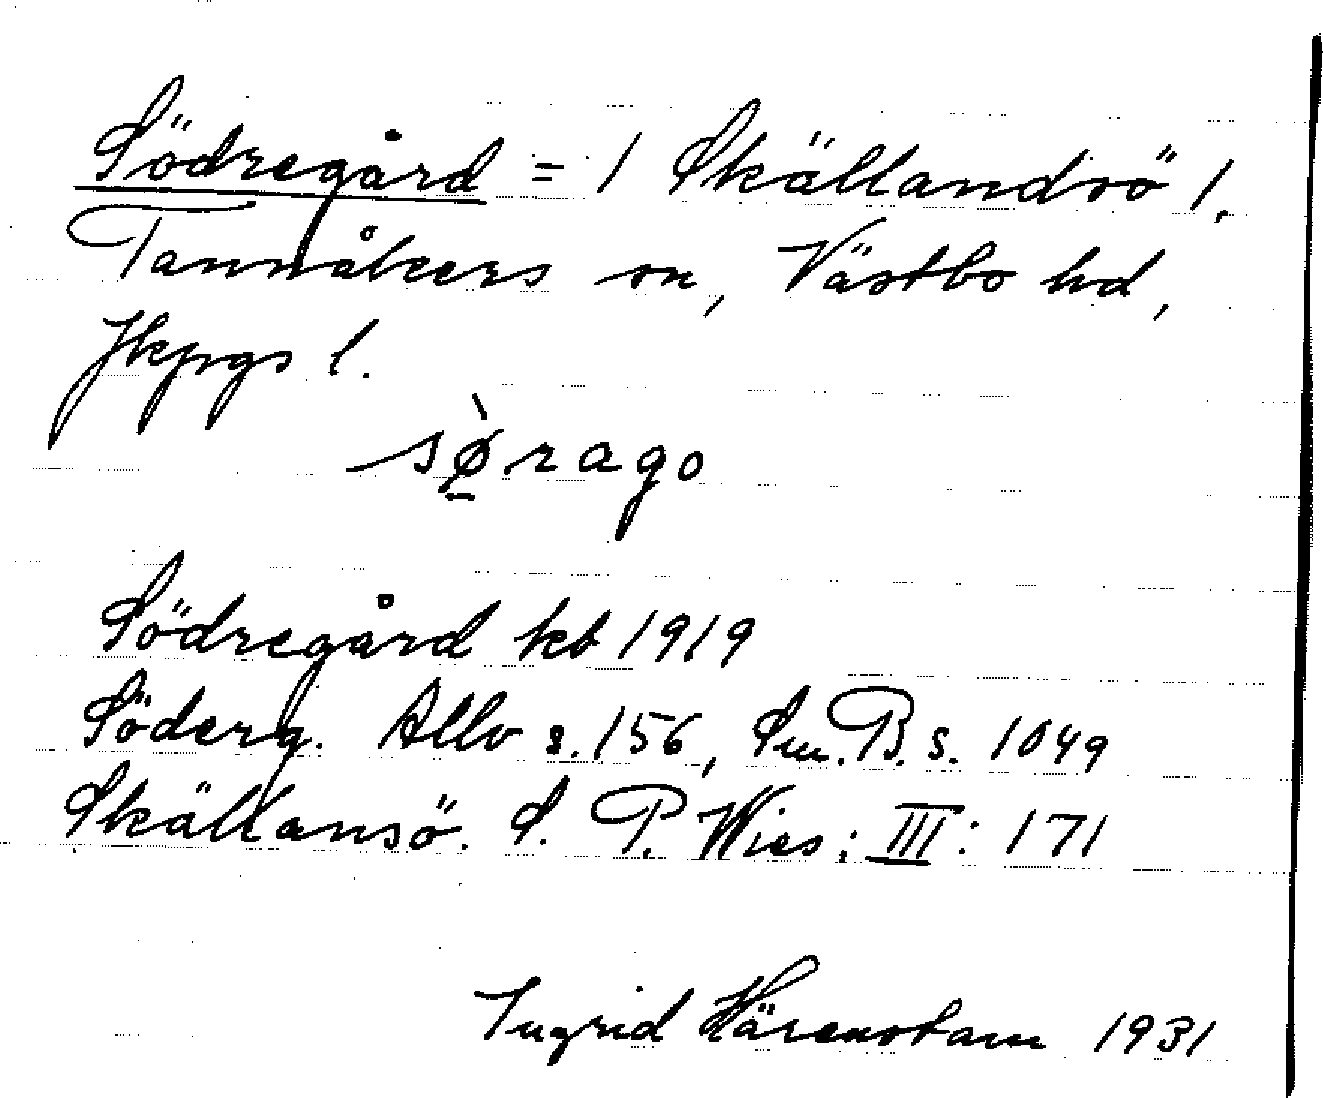 Södregård = / Skällandsö /.
Tannåkers sn, Västbo hd,
Jkpgs l.
sø̱̀rago
Södregård kb 1919
Söderg. Allv s. 156, Sm. B. s. 1049
Skällansö. S. P. Wies: III: 171
Ingrid Härenstam 1931